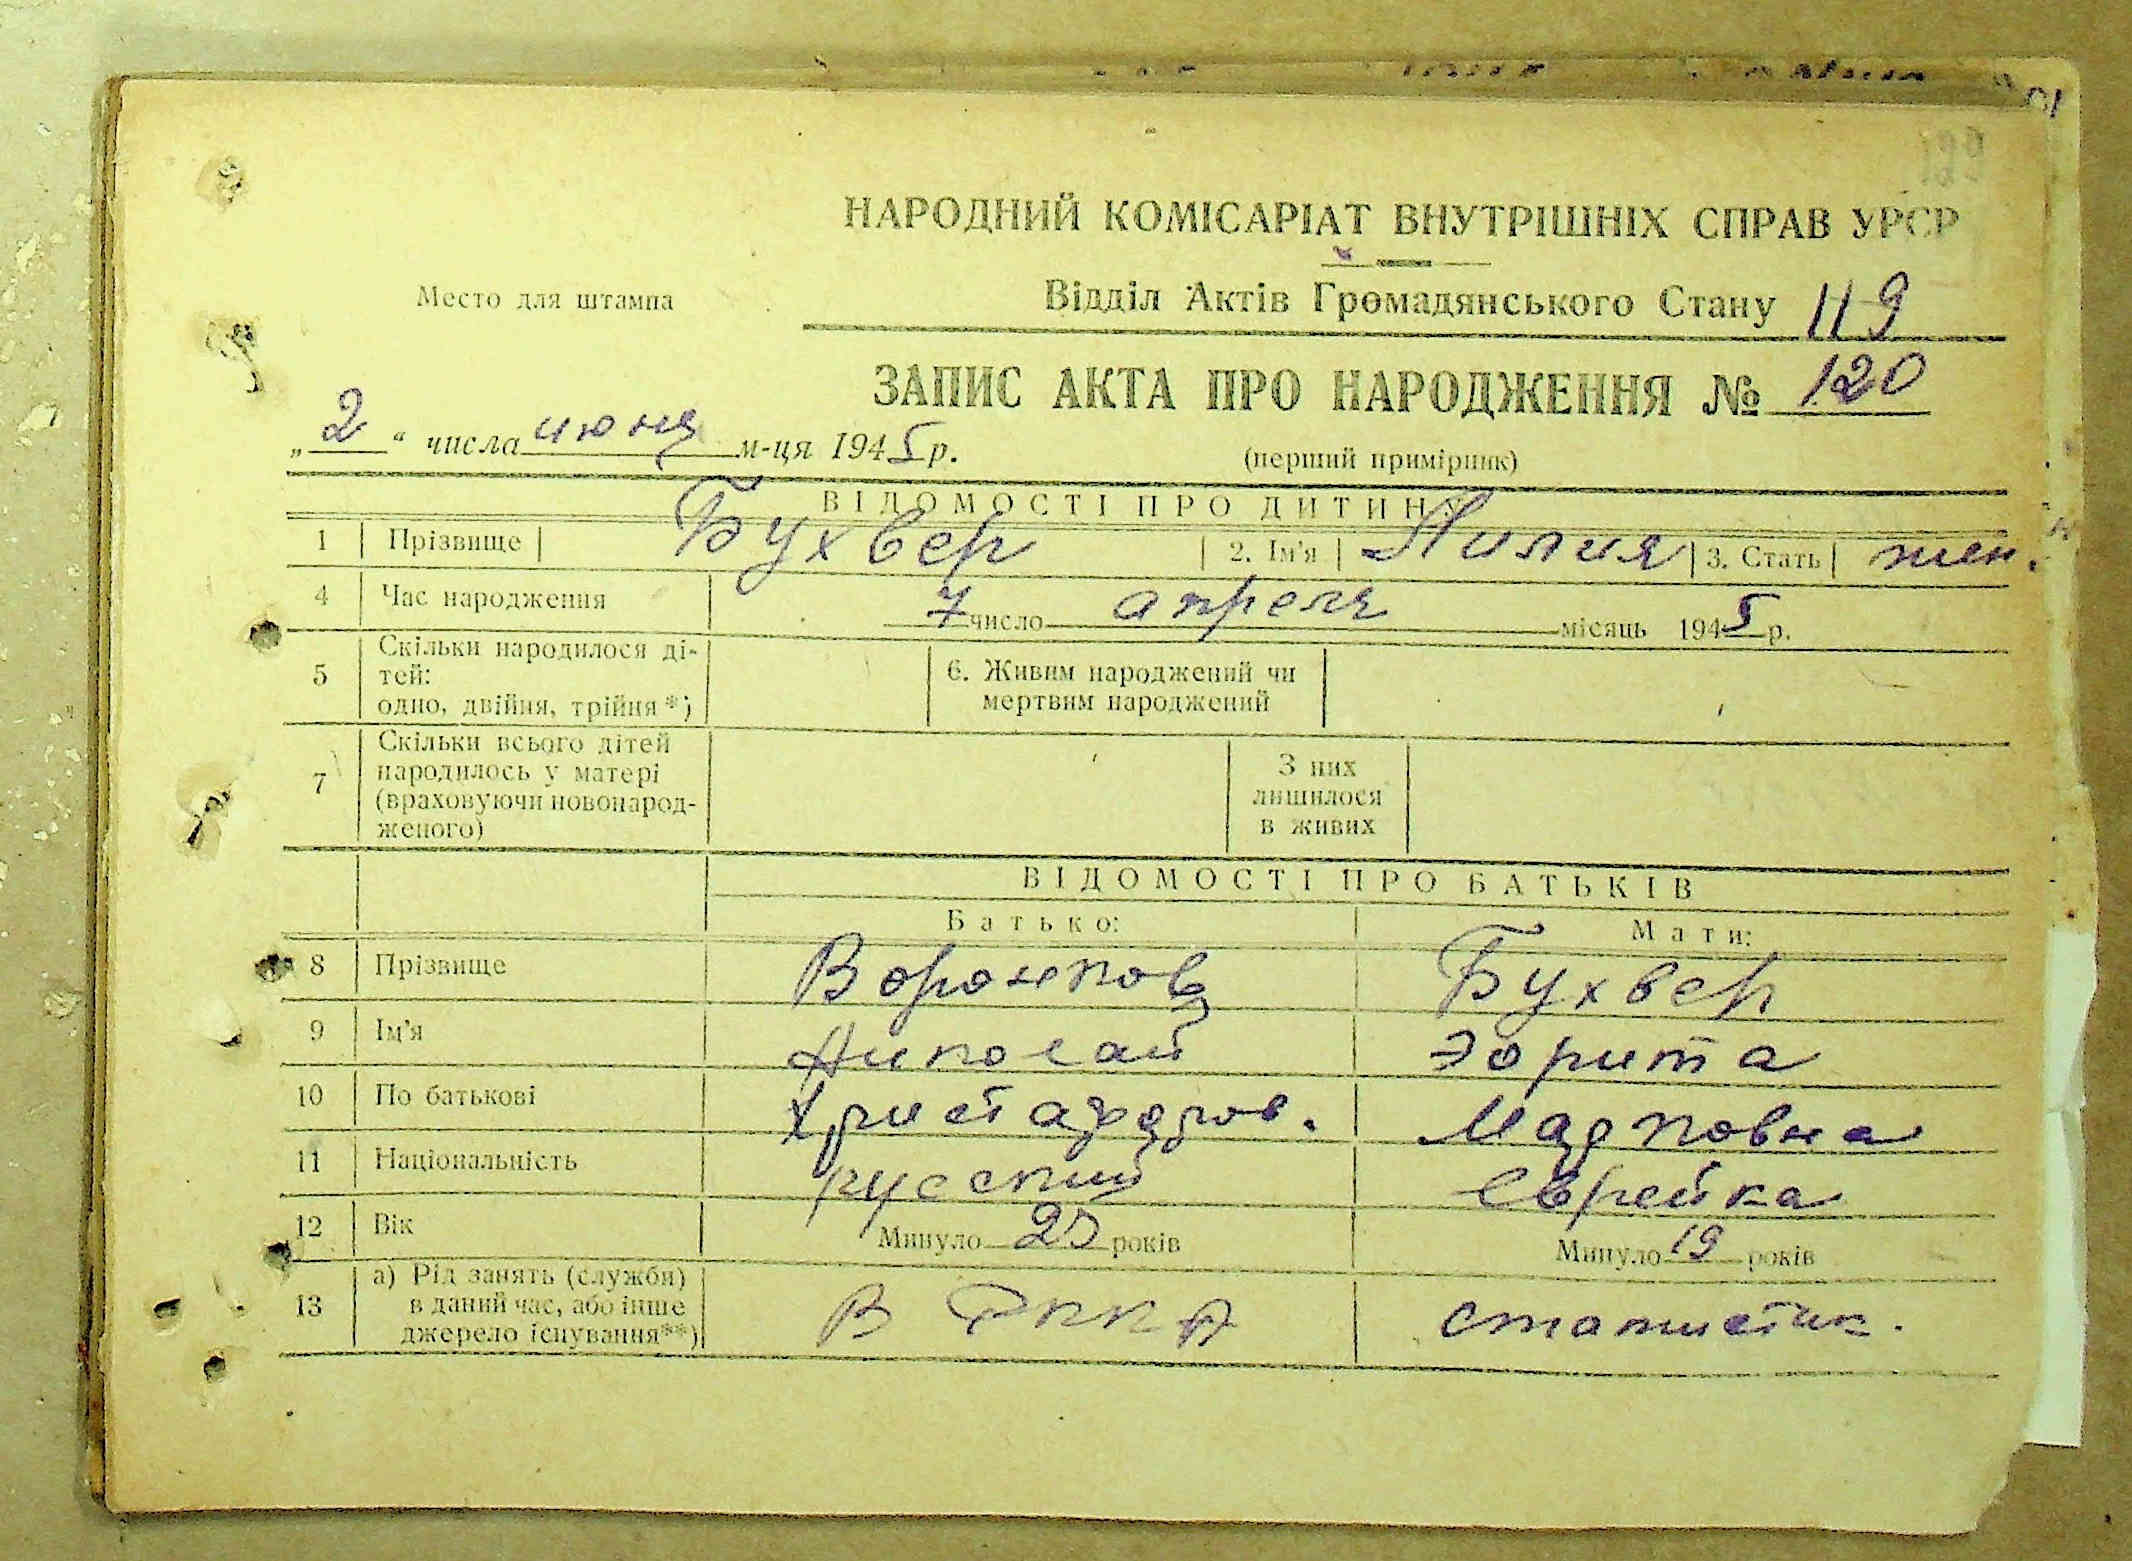 НАРОДНИЙ КОМІСАРІАТ ВНУТРІШНІХ СПРАВ УРСР
Место для штампа
Відділ Актів Громадянського Стану 119
ЗАПИС АКТА ПРО НАРОДЖЕННЯ № 120
„2“ числа июня м-ця 1945 р.
(перший примірник)
ВІДОМОСТІ ПРО ДИТИНУ
1 Прізвище Бухвер 2. Ім'я Лилия 3. Стать жен.
4 Час народження 7 число апреля місяць 1945 р.
5 Скільки народилося ді-
тей:
одно, двійня, трійня *)
6. Живим народжений чи
мертвим народжений
7 Скільки всього дітей
народилось у матері
(враховуючи новонарод-
женого)
З них
лишилося
в живих
ВІДОМОСТІ ПРО БАТЬКІВ
Батько: Мати:
8 Прізвище Воронков Бухвер
9 Ім'я Николай
10 По батькові
11 Національність русский еврейка
12 Вік Минуло років Минуло 19 років
13 а) Рід занять (служби)
в даний час, або інше
джерело існування**)
В РККА статистик.